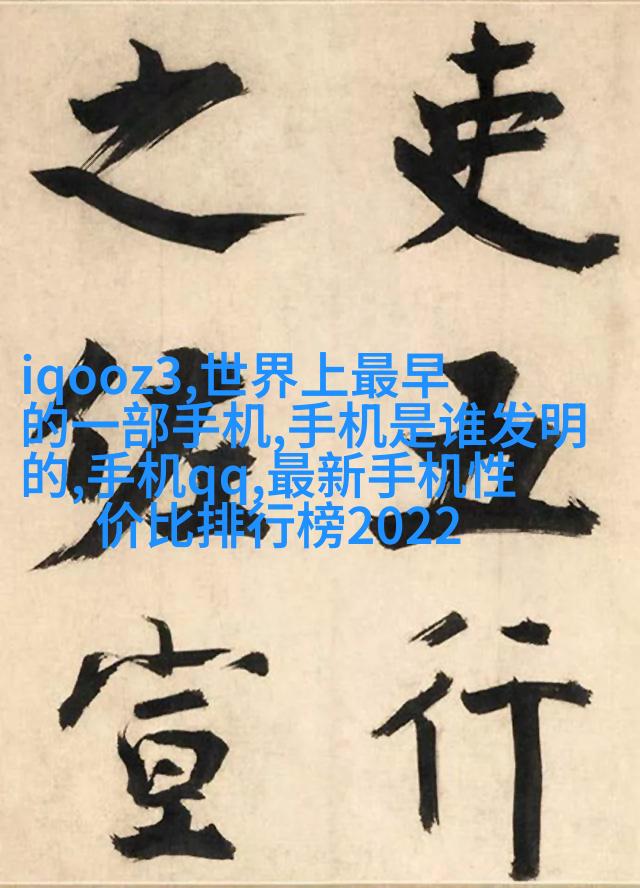 吏五行
之佐宣
iqooz3,世界上最早
的一部手机,手机是谁发明
的,手机qq,最新手机性
价比排行榜2022